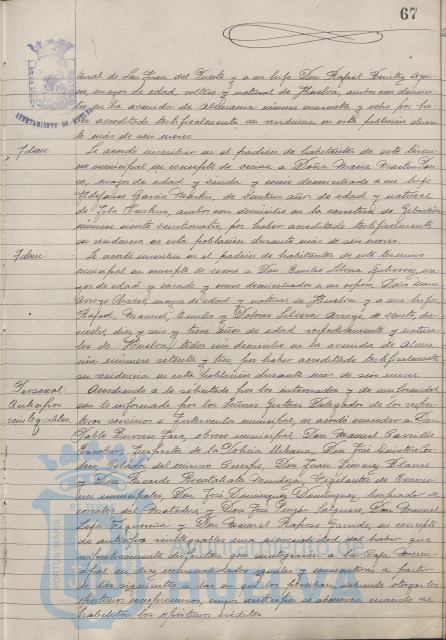 67
tural de San Juan del Puerto y a su hijo Don Rafael
mayor de edad, soltero y natural de Huelva, ambos con domici-
lio en la avenida de Alemania número noventa y ocho por ha-
ber acreditado testificalmente su residencia en esta población duran-
te más de seis meses.
Idem. Se acordó inscribir en el padrón de habitantes de este térmi-
no municipal en concepto de vecina a Doña María Martín
mayor de edad y viuda y como domiciliado a su hijo
Ildefonso García Martín, de años de edad y natural
de Isla Cristina, ambos con domicilio en la carretera de Gibraleón
número ciento por haber acreditado testificalmente
su residencia en esta población durante más de seis meses.
Idem. Se acordó inscribir en el padrón de habitantes de este término
municipal en concepto de vecino a Don Emilio Silvera Gutierrez, ma-
yor de edad y casado y como domiciliados a su esposa Doña Juana
Arroyo mayor de edad y natural de Huelva y a sus hijos
Rafael, Manuel, Emilio y Dolores Silvera Arroyo, de veinte, die-
ciseis, diez y seis y trece años de edad respectivamente y natura-
les de Huelva, todos con domicilio en la avenida de Alema-
nia número setenta y tres, por haber acreditado testificalmente
su residencia en esta población durante más de seis meses.
Personal: Accediendo a lo solicitado por los interesados y de conformidad
Anticipos con lo informado por los Señores Gestores Delegados de los respec-
reintegrables. tivos servicios e Intervención municipal, se acordó conceder a Don
Pablo obrero municipal, Don Manuel
Inspector de la Policía Urbana, Don José
Celador del mismo Cuerpo, Don Juan Jimenez Blanco
y Don Ricardo Mendoza, Vigilantes de
municipales, Don José Dominguez Dominguez, limpiador de
corrales del Matadero, y Don José Don Manuel
Figueroa y Don Manuel Garrido, en concepto
de anticipo reintegrable una mensualidad del haber que
respectivamente disfrutan, que reintegrarán a la Caja Munici-
pal en diez mensualidades iguales y consecutivas a partir
de la siguiente a la en que los perciban, debiendo otorgar los
oportunos compromisos, cuyos anticipos se abonarán cuando se
habiliten los oportunos créditos.